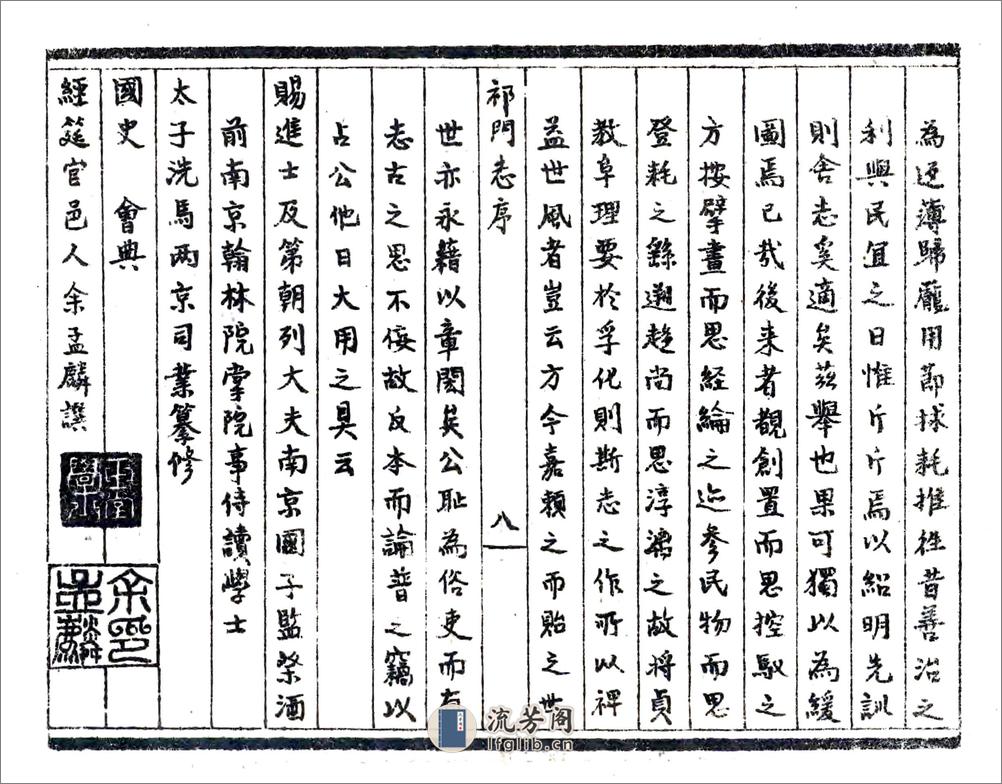 為逆薄歸龐用節拯耗推往昔善治之
利興民宜之日惟斤斤焉以紹明先訓
則舍志奚適矣茲舉也果可獨以為緩
圖焉已哉後来者觀創置而思控馭之
方按擘畫而思經綸之迹參民物而思
登耗之繇遡趋尚而思淳澆之故将貞
教阜理要於孚化則斯志之作所以裨
益世風者豈云方今嘉頼之而貽之世
祁門志序
八
世亦永籍以章閎矣公耻為俗吏而有
志古之思不侫故反本而論著之竊以
占公他日大用之具云
賜進士及第朝列大夫南京國子監祭酒
前南京翰林院掌院事侍讀學士
太子洗馬两京司業纂修
國史 會典
經筵官邑人余孟麟譔
余孟麟印
流芳阁
lfglib.cn